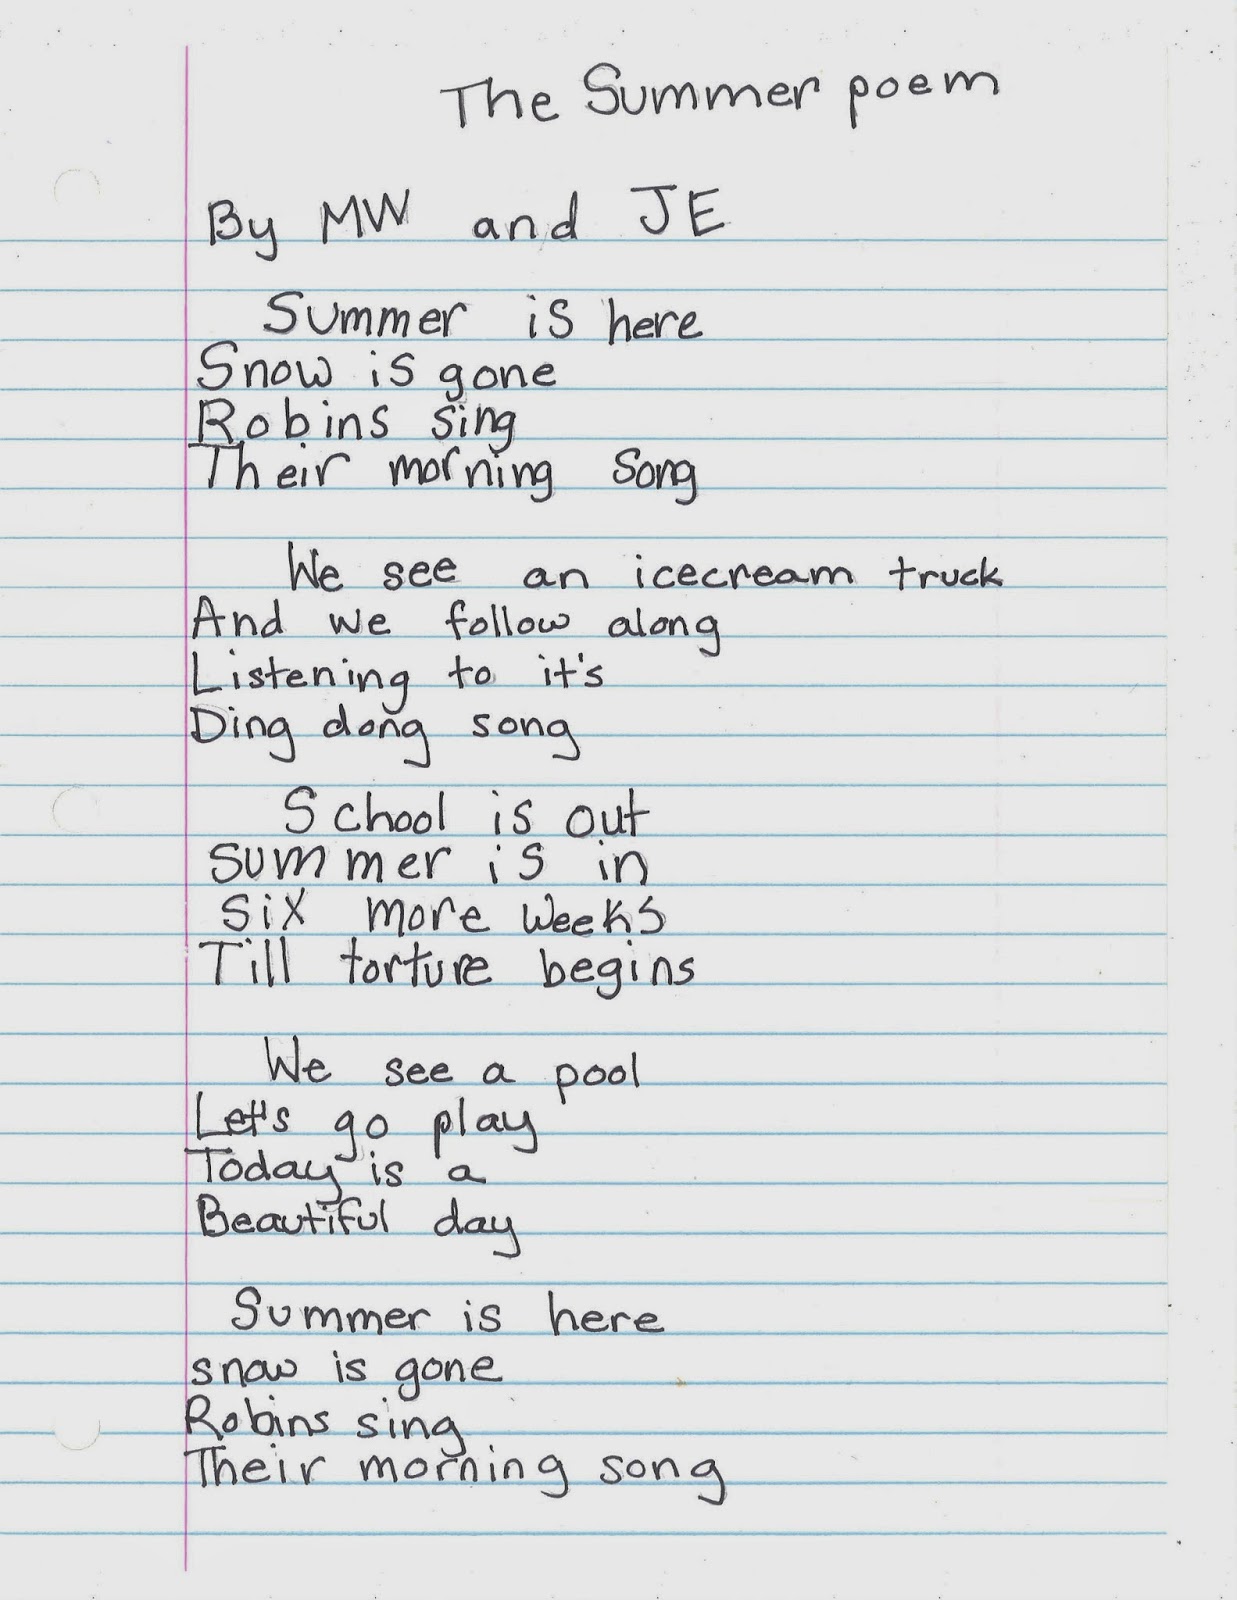 The Summer poem
By MW and JE
Summer is here
Snow is gone
Robins sing
Their morning song
We see an icecream truck
And we follow along
Listening to it's
Ding dong song
School is out
summer is in
six more weeks
Till torture begins
We see a pool
Let's go play
Today is a
Beautiful day
Summer is here
snow is gone
Robins sing
Their morning song